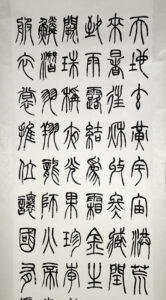 天地玄黃宇宙洪荒
來暑往秋收冬藏閏
致雨露結為霜金生
闕珠稱夜光果珍李
鱗潛羽翔龍師火帝
服衣裳推位讓國有